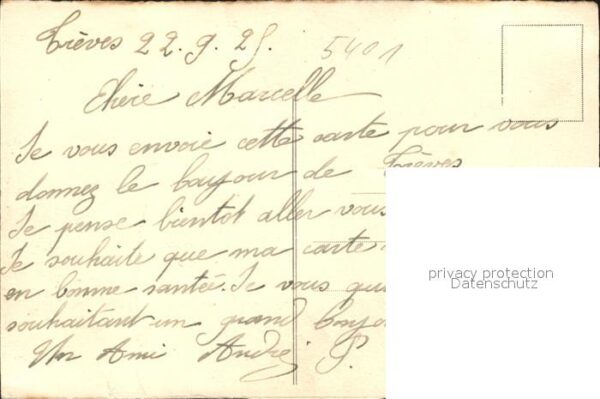 Trèves 22.9.25. 5401
Chère Marcelle
Je vous envoie cette carte pour vous
donnez le bonjour de Trèves
Je pense bientot aller vous
Je souhaite que ma carte
en bonne santée. Je vous qui
souhaitant un grand bonjo
Un Ami André P.
privacy protection
Datenschutz